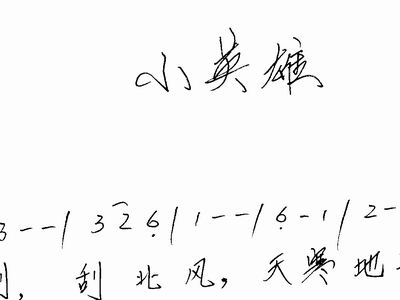 小英雄
3 - - | 3 2 6̣ | 1 - - | 6̣ - 1 | 2 -
刮北风，天寒地